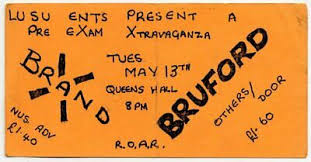 LUSU ENTS PRESENT A
PRE EXAM XTRAVAGANZA
TUES
MAY 13TH
QUEENS HALL
8PM
BRAND
BRUFORD
NUS. ADV
£1.40
OTHERS/DOOR
£1.60
R.O.A.R.